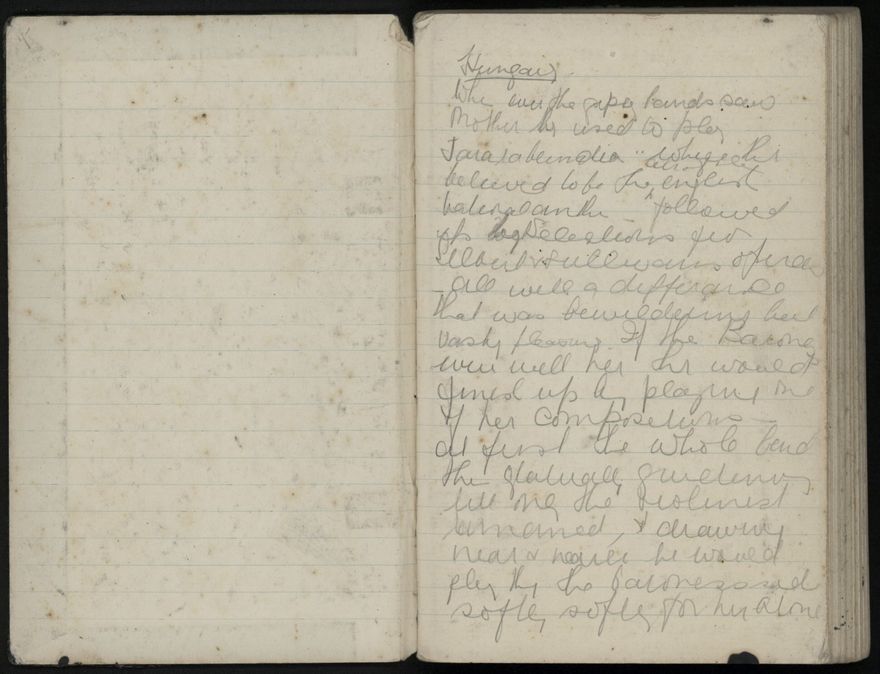 Hungary
When ever the gipsy bands saw
Mother they used to play
Tararaboomdia" which they
believed to be the english
National anthem followed
selections from
Gilbert & Sullivans operas
all with a difference
that was bewildering but
vastly pleasing. If the Baroness
were with her they would
finish up by playing one
of her compositions —
at first the whole band
then gradually
till only the violinist
remained, & drawing
near & nearer he would
play the Baroness
softly, softly for her alone